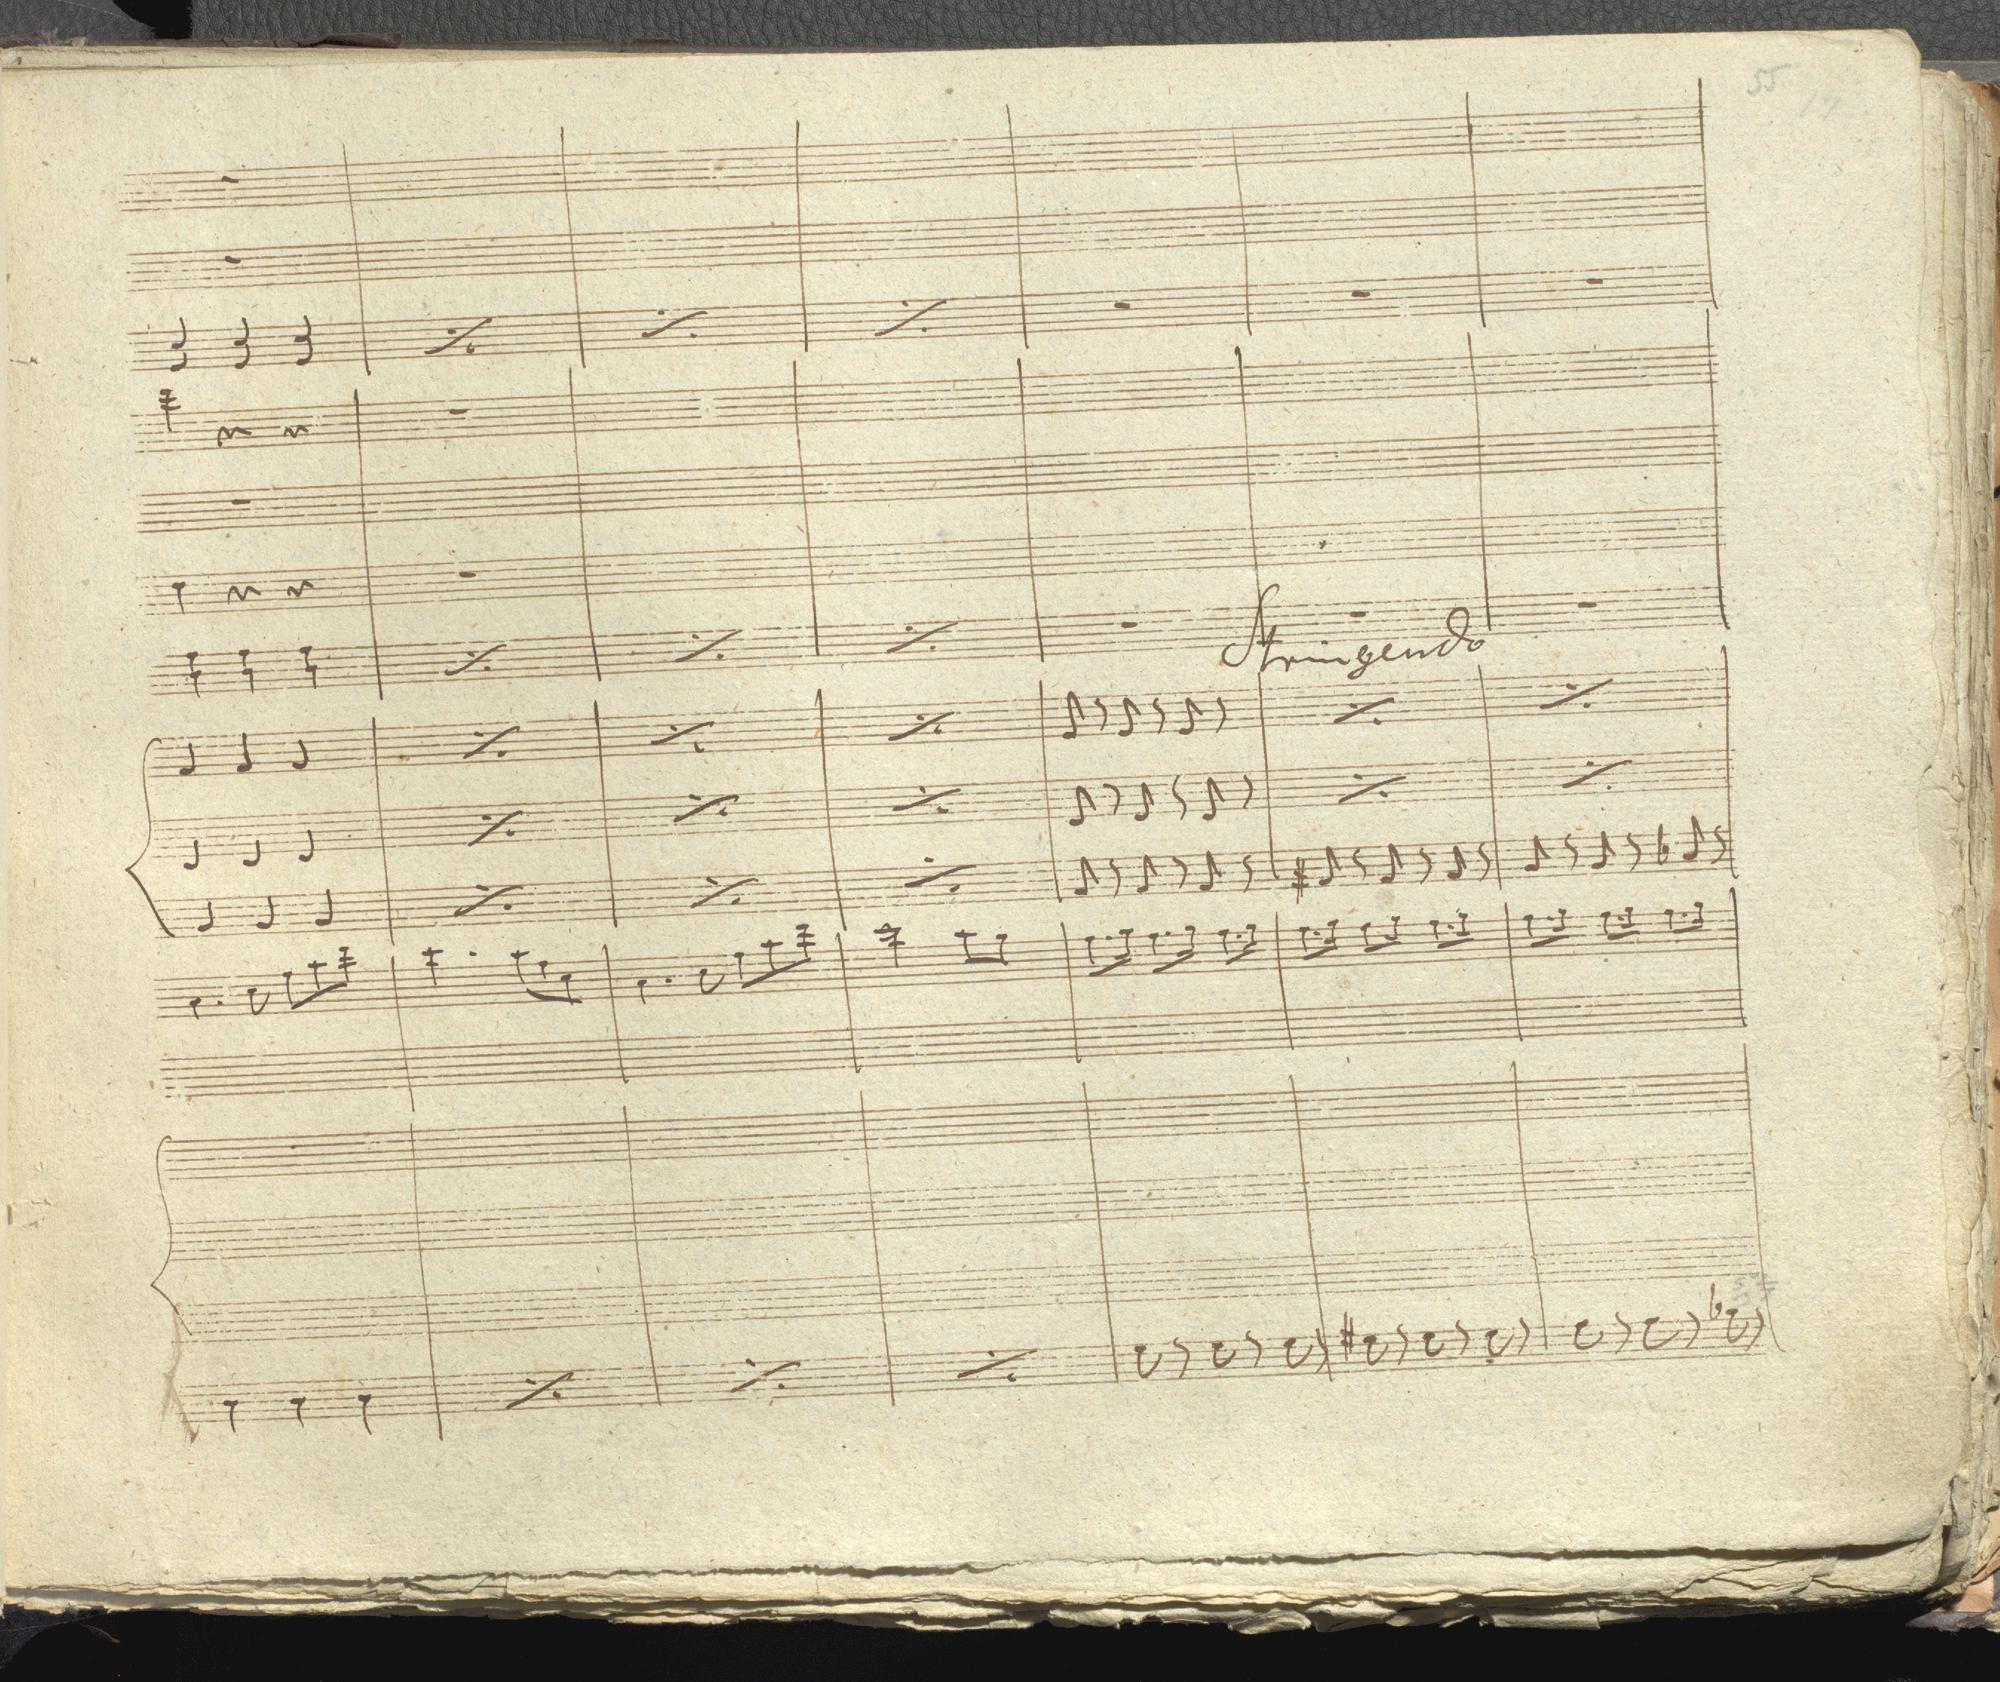 55
Stringendo